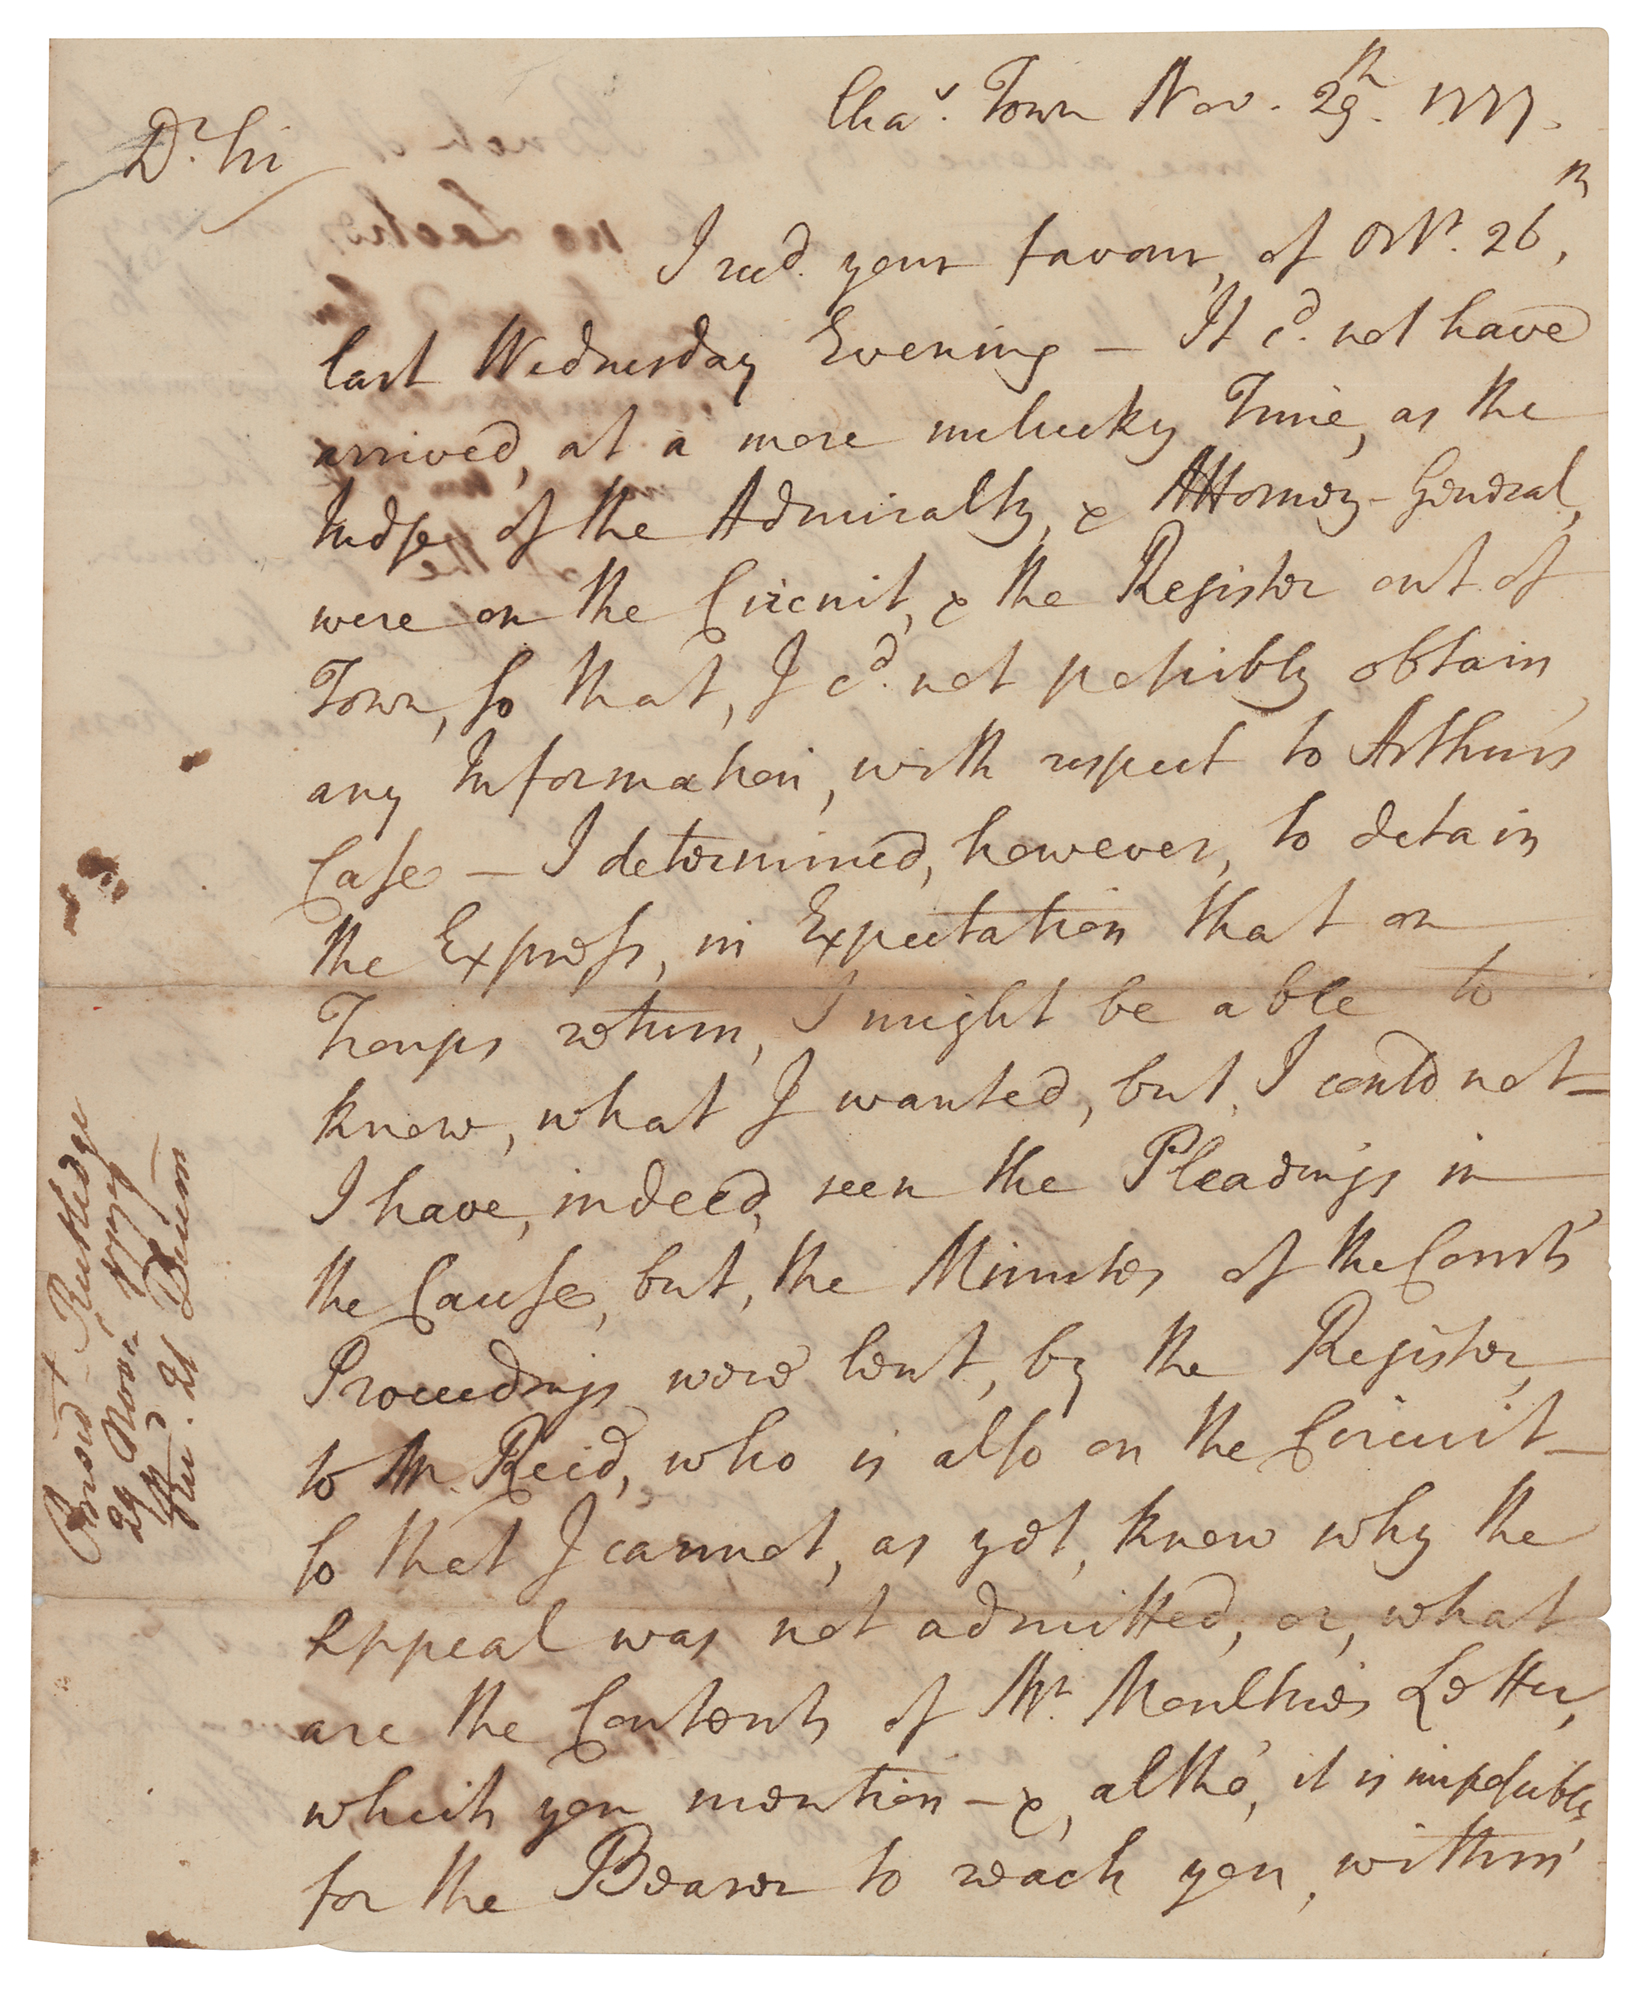 Chas. Town Nov. 29th. 1777.
Dr. Sir
I recd. your favour, of Octr. 26th,
last Wednesday Evening — It cd. not have
arrived, at a more unlucky Time, as the
Judge of the Admiralty, & Attorney-General,
were on the Circuit, & the Register out of
Town, so that, I cd. not possibly obtain
any Information, with respect to Arthur's
Case — I determined, however, to detain
the Express, in Expectation that on
return, I might be able to
know, what I wanted, but, I could not —
I have, indeed, seen the Pleadings in
the Cause, but, the Minutes of the Court's
Proceedings were lent, by the Register,
to Mr. Reid, who is also on the Circuit —
so that I cannot, as yet, know why the
Appeal was not admitted, or, what
are the Contents of Mr. Moultrie's Letter,
which you mention — &, altho', it is impossible
for the Bearer to reach you, within
Presidt Rutledge
29 Novr. 1777
Recd. 21 Decem